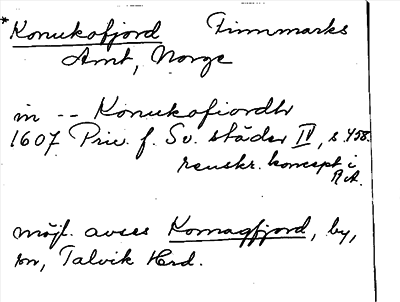 *Konukofjord Finnmarks
Amt, Norge
in -- Konukofiordh
1607 Priv. f. Sv. städer IV, s 458.
renskr. koncept i
RA.
möjl. avses Komagfjord, by,
sn, Talvik Hrd.